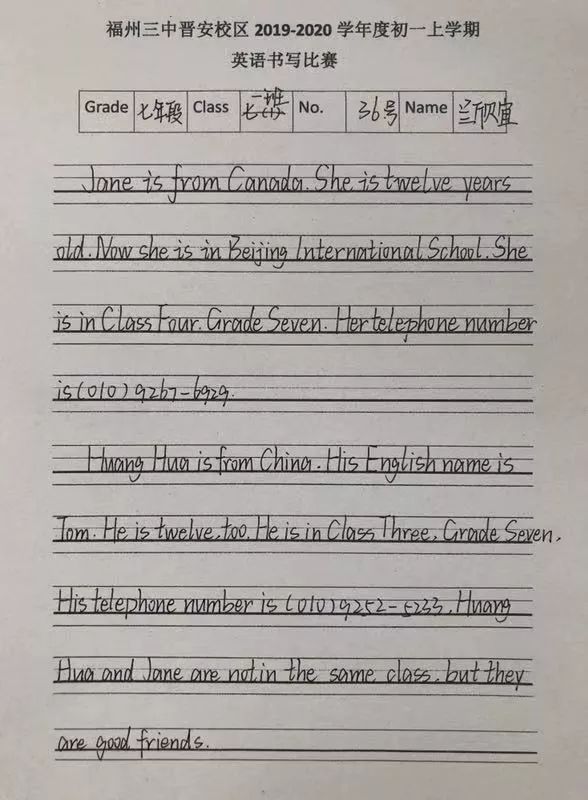 福州三中晋安校区 2019-2020 学年度初一上学期
英语书写比赛
Grade 七年段 Class 一班 No. 36号 Name
Jane is from Canada. She is twelve years
old. Now she is in Beijing International School. She
is in Class Four. Grade Seven. Her telephone number
is (010) 9267-6929.
Huang Hua is from China. His English name is
Tom. He is twelve, too. He is in Class Three, Grade Seven.
His telephone number is (010) 9252-5233. Huang
Hua and Jane are not in the same class, but they
are good friends.